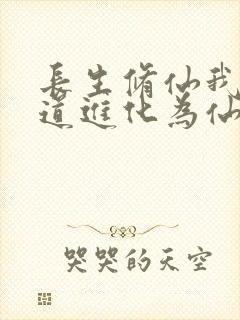 長生脩仙我
道進化為仙
哭哭的天空